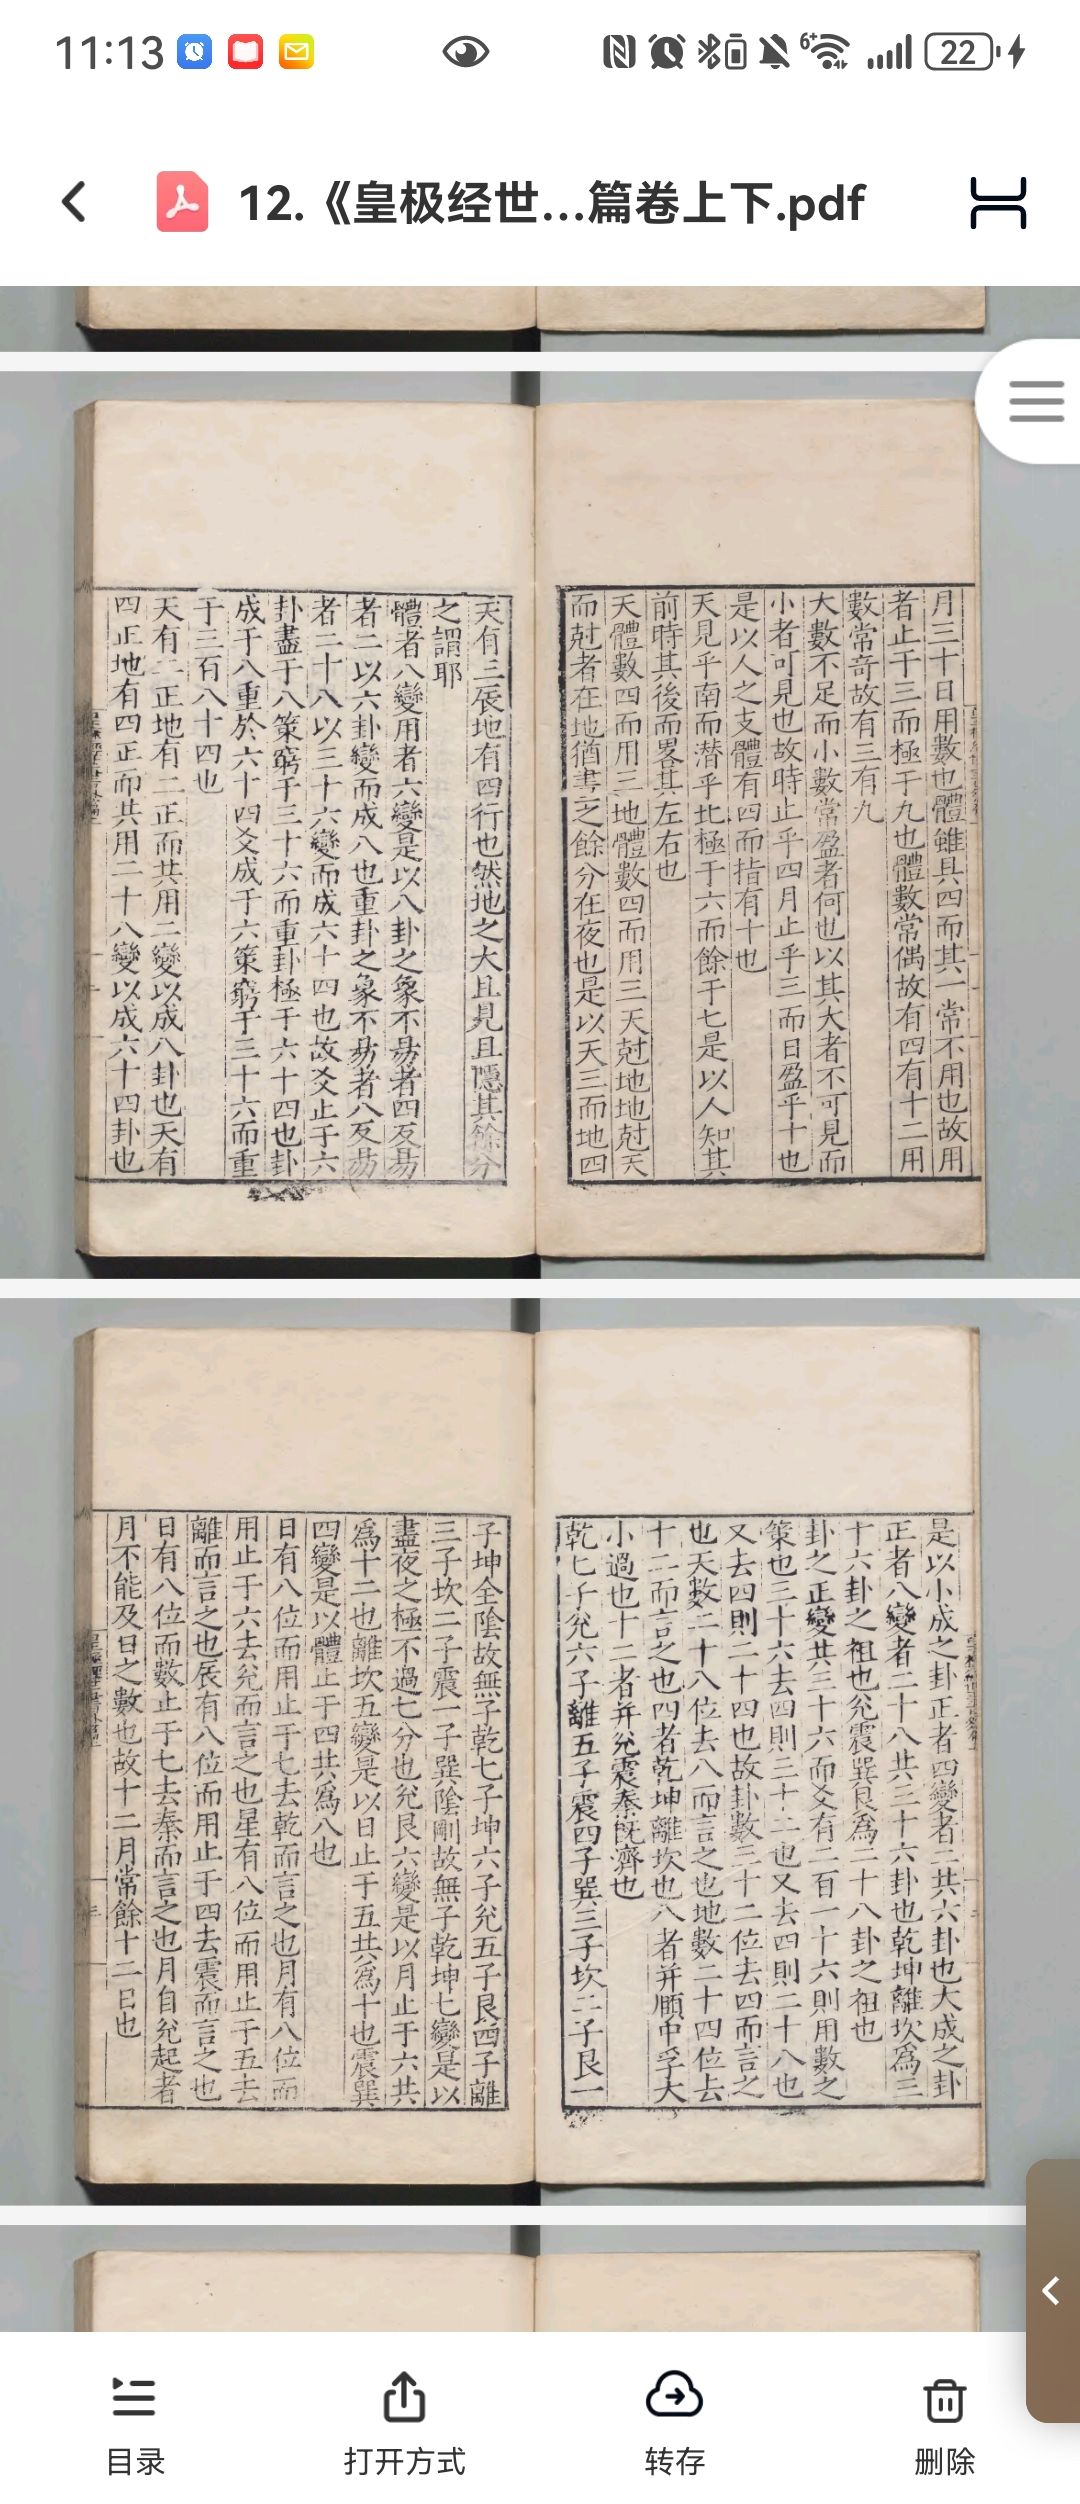 11:13
6+
22
12.《皇极经世...篇卷上下.pdf
月三十日用數也體雖具四而其一常不用也故用
者止于三而極于九也體數常偶故有四有十二用
數常奇故有三有九
大數不足而小數常盈者何也以其大者不可見而
小者可見也故時止乎四月止乎三而日盈乎十也
是以人之支體有四而指有十也
天見乎南而潜乎北極于六而餘于七是以人知其
前時其後而畧其左右也
天體數四而用三地體數四而用三天尅地地尅天
而尅者在地猶晝之餘分在夜也是以天三而地四
天有三辰地有四行也然地之大且見且隱其餘分
之謂耶
體者八變用者六變是以八卦之象不易者四反易
者二以六卦變而成八也重卦之象不易者八反易
者二十八以三十六變而成六十四也故爻止于六
卦盡于八策窮于三十六而重卦極于六十四也卦
成于八重於六十四爻成于六策窮于三十六而重
于三百八十四也
天有二正地有二正而共用二變以成八卦也天有
四正地有四正而共用二十八變以成六十四卦也
是以小成之卦正者四變者二共六卦也大成之卦
正者八變者二十八共三十六卦也乾坤離坎爲三
十六卦之祖也兊震巽艮爲二十八卦之祖也
卦之正變共三十六而爻有二百一十六則用數之
策也三十六去四則三十二也又去四則二十八也
又去四則二十四也故卦數三十二位去四而言之
也天數二十八位去八而言之也地數二十四位去
十二而言之也四者乾坤離坎也八者并頤中孚大
小過也十二者并兊震泰旣濟也
乾七子兊六子離五子震四子巽三子坎二子艮一
子坤全陰故無子乾七子坤六子兊五子艮四子離
三子坎二子震一子巽陰剛故無子乾坤七變是以
晝夜之極不過七分也兊艮六變是以月止于六共
爲十二也離坎五變是以日止于五共爲十也震巽
四變是以體止于四共爲八也
日有八位而用止于七去乾而言之也月有八位而
用止于六去兊而言之也星有八位而用止于五去
離而言之也辰有八位而用止于四去震而言之也
日有八位而數止于七去泰而言之也月自兊起者
月不能及日之數也故十二月常餘十二日也
目录
打开方式
转存
删除